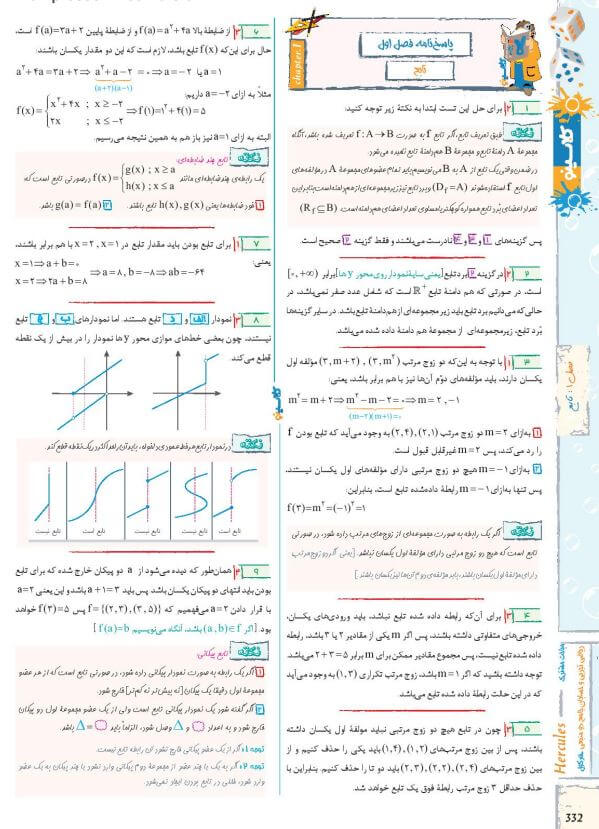 پاسخ‌نامه فصل اول
تابع
chapter.1
۱ ۲ برای حل این تست ابتدا به نکتهٔ زیر توجه کنید:
نکته طبق تعریف تابع، اگر تابع f به صورت f: A→B تعریف شده باشد، آنگاه
مجموعهٔ A دامنهٔ تابع و مجموعهٔ B هم‌دامنهٔ تابع نامیده می‌شود.
در ضمن وقتی یک تابع از A به B می‌نویسیم باید تمام عضوهای مجموعهٔ A در مؤلفه‌های
اول تابع f استفاده شوند (D_f = A) و برد تابع نیز زیرمجموعه‌ای از هم‌دامنه است بنابراین
تعداد اعضای برد تابع همواره کوچکتر یا مساوی تعداد اعضای هم‌دامنه است. (R_f ⊆ B)
پس گزینه‌های ۱ و ۳ و ۴ نادرست می‌باشند و فقط گزینه ۲ صحیح است.
۲ ۲ در گزینه ۲ برد تابع [یعنی سایهٔ نمودار روی محور y ها] برابر (۰, +∞)
است، در صورتی که هم دامنهٔ تابع ℝ⁺ است که شامل عدد صفر نمی‌باشد، در
حالی که می‌دانیم برد تابع باید زیر مجموعه‌ای از هم دامنهٔ تابع باشد. در سایر گزینه‌ها
بُرد تابع، زیرمجموعه‌ای از مجموعهٔ هم دامنهٔ داده شده می‌باشد.
۳ ۱ با توجه به این‌که دو زوج مرتب (۳, m²) , (۳, m+۲) مؤلفه اول
یکسان دارند، باید مؤلفه‌های دوّم آن‌ها نیز با هم برابر باشد، یعنی:
m² = m+۲ ⇒ m² − m − ۲ = ۰ ⇒ m = ۲, −۱
(m−۲)(m+۱)=۰
۱ به‌ازای m=۲ دو زوج مرتب (۲,۱), (۲,۴) به وجود می‌آید که تابع بودن f
را رد می‌کند، پس m=۲ غیرقابل قبول است
۲ به‌ازای m=−۱ هیچ دو زوج مرتبی دارای مؤلفه‌های اول یکسان نیستند.
پس تنها به‌ازای m=−۱ رابطهٔ داده‌شده تابع است، بنابراین:
f(۳)=m²=(−۱)²=۱
نکته اگر یک رابطه به صورت مجموعه‌ای از زوج‌های مرتب داده شود، در صورتی
تابع است که هیچ دو زوج مرتبی دارای مؤلفهٔ اول یکسان نباشد. [یعنی اگر دو زوج مرتب
دارای مؤلفهٔ اول یکسان باشند، باید مؤلفه‌ی دوم آن‌ها نیز یکسان باشند.]
۴ ۳ برای آن‌که رابطه داده شده تابع نباشد، باید ورودی‌های یکسان،
خروجی‌های متفاوتی داشته باشند، پس اگر m یکی از مقادیر ۲ یا ۳ باشد، رابطه
داده شده تابع نیست، پس مجموع مقادیر ممکن برای m برابر ۵=۳+۲ می‌باشد.
توجه داشته باشید که اگر m=۱ باشد، زوج مرتب تکراری (۱,۳) به وجود می‌آید
که در این حالت رابطهٔ داده شده تابع می‌باشد.
۵ ۳ چون در تابع هیچ دو زوج مرتبی نباید مؤلفهٔ اول یکسان داشته
باشند، پس از بین زوج مرتب‌های (۱,۲), (۱,۴) باید یکی را حذف کنیم و از
بین زوج مرتب‌های (۲,۴), (۲,۲), (۲,۳) باید دو تا را حذف کنیم. بنابراین با
حذف حداقل ۳ زوج مرتب رابطهٔ فوق یک تابع خواهد شد.
۶ ۳ از ضابطهٔ بالا f(a)=a²+۴a و از ضابطهٔ پایین f(a)=۲a+۲ است،
حال برای این‌که f(x) تابع باشد، لازم است که این دو مقدار یکسان باشند:
a²+۴a=۲a+۲ ⇒ a²+a−۲=۰ ⇒ a=−۲ یا a=۱
(a+۲)(a−۱)
مثلاً به ازای a=−۲ داریم:
f(x)= { x²+۴x ; x≥−۲
۲x ; x≤−۲ ⇒ f(۱)=۱²+۴(۱)=۵
البته به ازای a=۱ نیز باز هم به همین نتیجه می‌رسیم.
نکته تابع چند ضابطه‌ای:
یک رابطه‌ی چندضابطه‌ای مانند f(x)= { g(x) ; x≥a
h(x) ; x≤a در صورتی تابع است که
۱ خود ضابطه‌ها یعنی h(x), g(x) تابع باشند. ۲ g(a)=f(a) باشد.
۷ ۱ برای تابع بودن باید مقدار تابع در x=۱ , x=۲ با هم برابر باشند،
یعنی:
x=۱ ⇒ a+b=۰
x=۲ ⇒ ۲a+b=۸ ⇒ a=۸, b=−۸ ⇒ ab=−۶۴
۸ ۳ نمودار الف و د تابع هستند. اما نمودارهای ب و ج تابع
نیستند، چون بعضی خط‌های موازی محور y ها نمودار را در بیش از یک نقطه
قطع می‌کند.
نکته در نمودار تابع هر خط عمودی دلخواه، باید آن را حداکثر در یک نقطه قطع کند.
تابع نیست
تابع است
تابع است
تابع نیست
تابع نیست
۹ ۴ همان‌طور که دیده می‌شود از a دو پیکان خارج شده که برای تابع
بودن باید انتهای دو پیکان یکسان باشد پس باید a+۱=۳ باشد و این یعنی a=۲
با قرار دادن a=۲ می‌فهمیم که f={(۲,۳),(۳,۵)} پس f(۳)=۵ خواهد
بود. [اگر (a,b)∈f باشد، آنگاه می‌نویسیم f(a)=b]
نکته تابع پیکانی:
۱ اگر یک رابطه به صورت نمودار پیکانی داده شود، در صورتی تابع است که از هر عضو
مجموعهٔ اول دقیقاً یک پیکان [نه بیش‌تر نه کم‌تر] خارج شود.
توجه ۱: اگر از یک عضو پیکانی خارج نشود آن رابطه تابع نیست.
فصل ۱: تابع
کلاسینو
Hercules
332